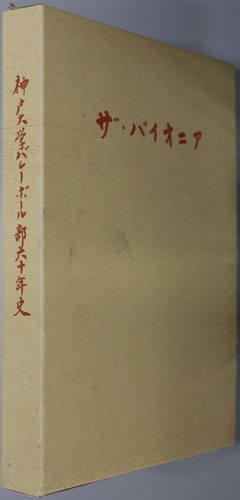 ザ・パイオニア
神戸大学バレーボール部六十年史